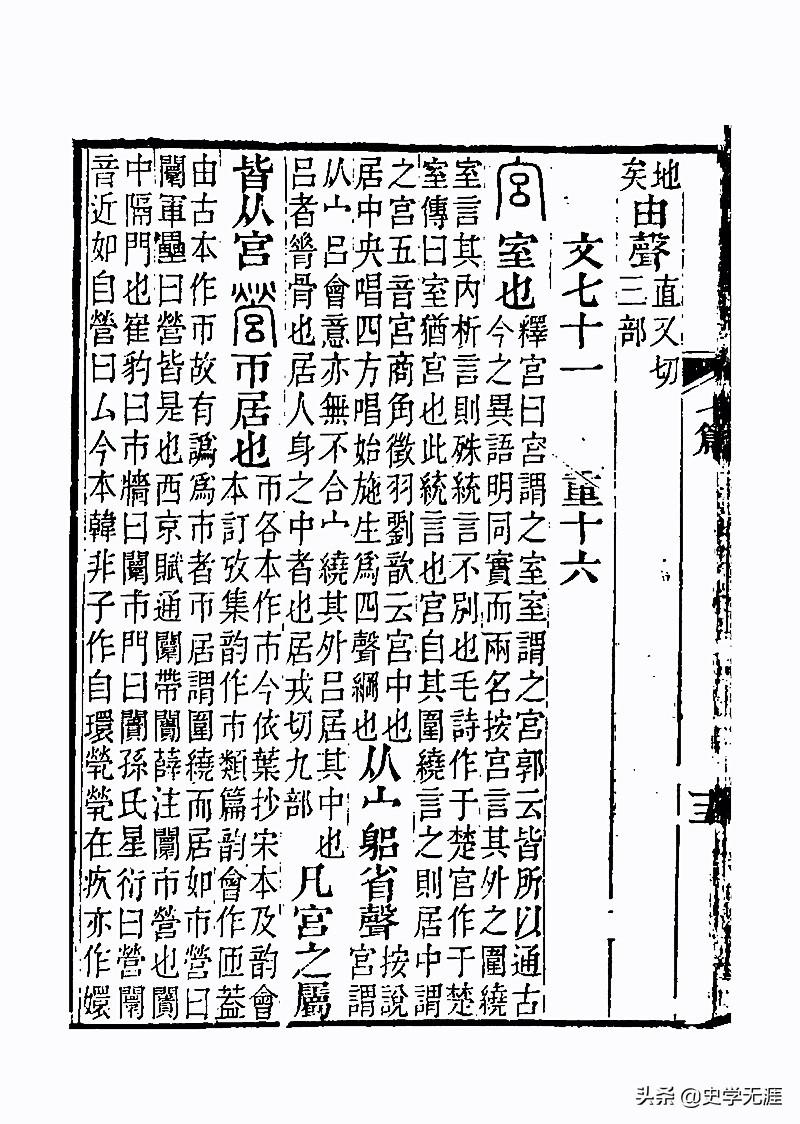 地
矣
由聲
直又切
三部
文七十一　重十六
宮 室也
釋宮曰宮謂之室室謂之宮郭云皆所以通古
今之異語明同實而兩名按宮言其外之圍繞
室言其內析言則殊統言不別也毛詩作于楚宮作于楚
室傳曰室猶宮也此統言也宮自其圍繞言之則居中謂
之宮五音宮商角徵羽劉歆云宮中也
居中央唱四方唱始施生爲四聲綱也
从宀躳省聲
按說
宮謂
从宀呂會意亦無不合宀繞其外呂居其中也
呂者脊骨也居人身之中者也居戎切九部
凡宮之屬
皆从宮 營 帀居也
帀各本作市今依葉抄宋本及韵會
本訂攷集韵作市類篇韵會作匝葢
由古本作帀故有譌爲市者帀居謂圍繞而居如市營曰
闤軍壘曰營皆是也西京賦通闤帶闠薛注闤市營也闠
中隔門也崔豹曰市牆曰闤市門曰闠孫氏星衍曰營闤
音近如自營曰厶今本韓非子作自環煢煢在疚亦作嬛
头条 @史学无涯